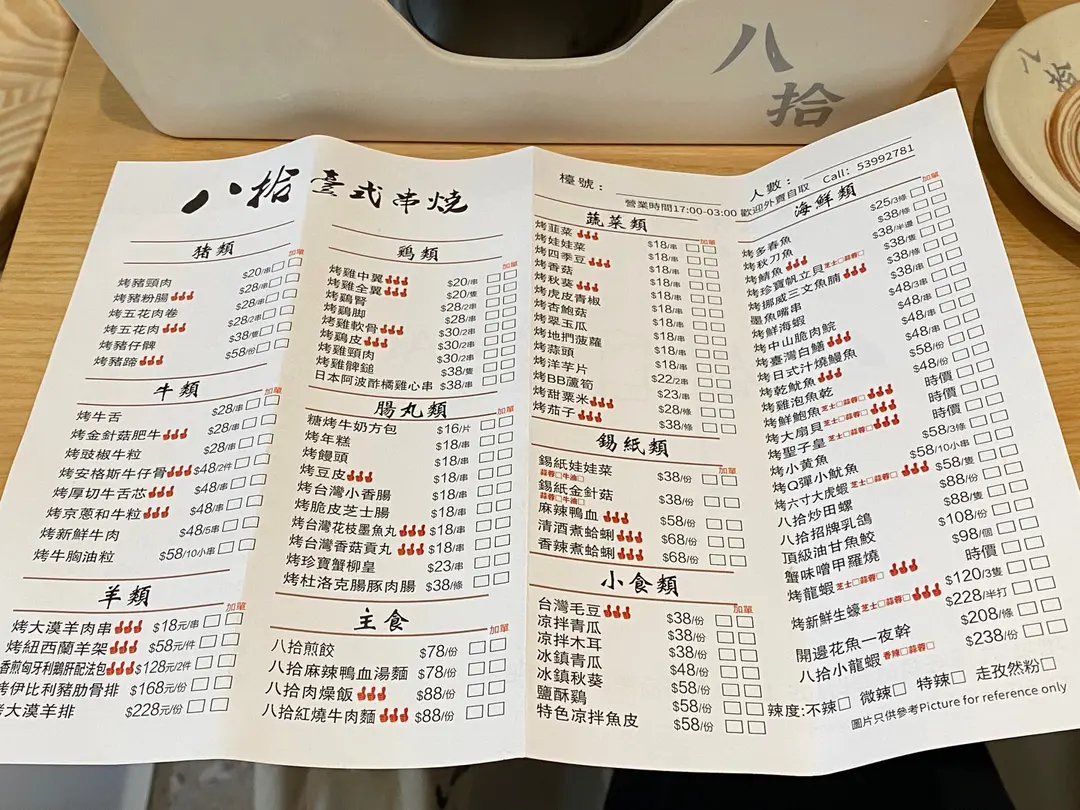 八拾
八拾
八拾 臺式串燒
豬類
加單
烤豬頸肉 $20/串
烤豬粉腸 $28/串
烤五花肉卷 $28/串
烤五花肉 $28/2串
烤豬仔髀 $38/隻
烤豬蹄 $58/份
牛類
加單
烤牛舌 $28/串
烤金針菇肥牛 $28/串
烤豉椒牛粒 $28/串
烤安格斯牛仔骨 $48/2件
烤厚切牛舌芯 $48/串
烤京蔥和牛粒 $48/串
烤新鮮牛肉 $48/5串
烤牛胸油粒 $58/10小串
羊類
加單
烤大漠羊肉串 $18元/串
烤紐西蘭羊架 $58元/件
香煎匈牙利鵝肝配法包 $128元/2件
烤伊比利豬肋骨排 $168元/份
烤大漠羊排 $228元/份
鷄類
加單
烤雞中翼 $20/串
烤雞全翼 $20/隻
烤鷄腎 $28/2串
烤鷄脚 $28/串
烤雞軟骨 $30/2串
烤鷄皮 $30/2串
烤雞頸肉 $30/2串
烤雞髀鎚 $38/隻
日本阿波酢橘雞心串 $38/串
腸丸類
加單
糖烤牛奶方包 $16/片
烤年糕 $18/串
烤饅頭 $18/串
烤豆皮 $18/串
烤台灣小香腸 $18/串
烤脆皮芝士腸 $18/串
烤台灣花枝墨魚丸 $18/串
烤台灣香菇貢丸 $18/串
烤珍寶蟹柳皇 $23/串
烤杜洛克腸豚肉腸 $38/條
主食
加單
八拾煎餃 $78/份
八拾麻辣鴨血湯麵 $78/份
八拾肉燥飯 $88/份
八拾紅燒牛肉麵 $88/份
檯號：
人數：
營業時間17:00-03:00 歡迎外賣自取 Call: 53992781
蔬菜類
加單
烤韮菜 $18/串
烤娃娃菜 $18/串
烤四季豆 $18/串
烤香菇 $18/串
烤秋葵 $18/串
烤虎皮青椒 $18/串
烤杏鮑菇 $18/串
烤翠玉瓜 $18/串
烤地捫菠蘿 $18/串
烤蒜頭 $18/串
烤洋芋片 $22/2串
烤BB蘆筍 $23/串
烤甜粟米 $28/條
烤茄子 $38/條
錫紙類
加單
錫紙娃娃菜 $38/份
蒜蓉□牛油□
錫紙金針菇 $38/份
蒜蓉□牛油□
麻辣鴨血 $58/份
清酒煮蛤蜊 $68/份
香辣煮蛤蜊 $68/份
小食類
加單
台灣毛豆 $38/份
涼拌青瓜 $38/份
涼拌木耳 $38/份
冰鎮青瓜 $48/份
冰鎮秋葵 $58/份
鹽酥鷄 $58/份
特色涼拌魚皮 $58/份
海鮮類
加單
烤多春魚 $25/3條
烤秋刀魚 $38/條
烤鯖魚 $38/半邊
烤珍寶帆立貝 芝士□蒜蓉□ $38/隻
烤挪威三文魚腩 $38/串
墨魚嘴串 $38/串
烤鮮海蝦 $48/3串
烤中山脆肉鯇 $48/串
烤臺灣白鱔 $48/串
烤日式汁燒鰻魚 $48/串
烤乾魷魚 $58/份
烤雞泡魚乾 $48/份
烤鮮鮑魚 芝士□蒜蓉□ 時價
烤大扇貝 芝士□蒜蓉□ 時價
烤聖子皇 芝士□蒜蓉□ 時價
烤小黃魚 $58/3條
烤Q彈小魷魚 $58/10小串
烤六寸大虎蝦 芝士□蒜蓉□ $58/隻
八拾炒田螺 $88/份
八拾招牌乳鴿 $88/隻
頂級油甘魚鮫 $108/份
蟹味噌甲羅燒 $98/個
烤龍蝦 芝士□蒜蓉□ 時價
烤新鮮生蠔 芝士□蒜蓉□ $120/3隻
$228/半打
開邊花魚一夜幹 $208/條
八拾小龍蝦 香辣□蒜蓉□ $238/份
辣度:不辣□ 微辣□ 特辣□ 走孜然粉□
圖片只供參考Picture for reference only